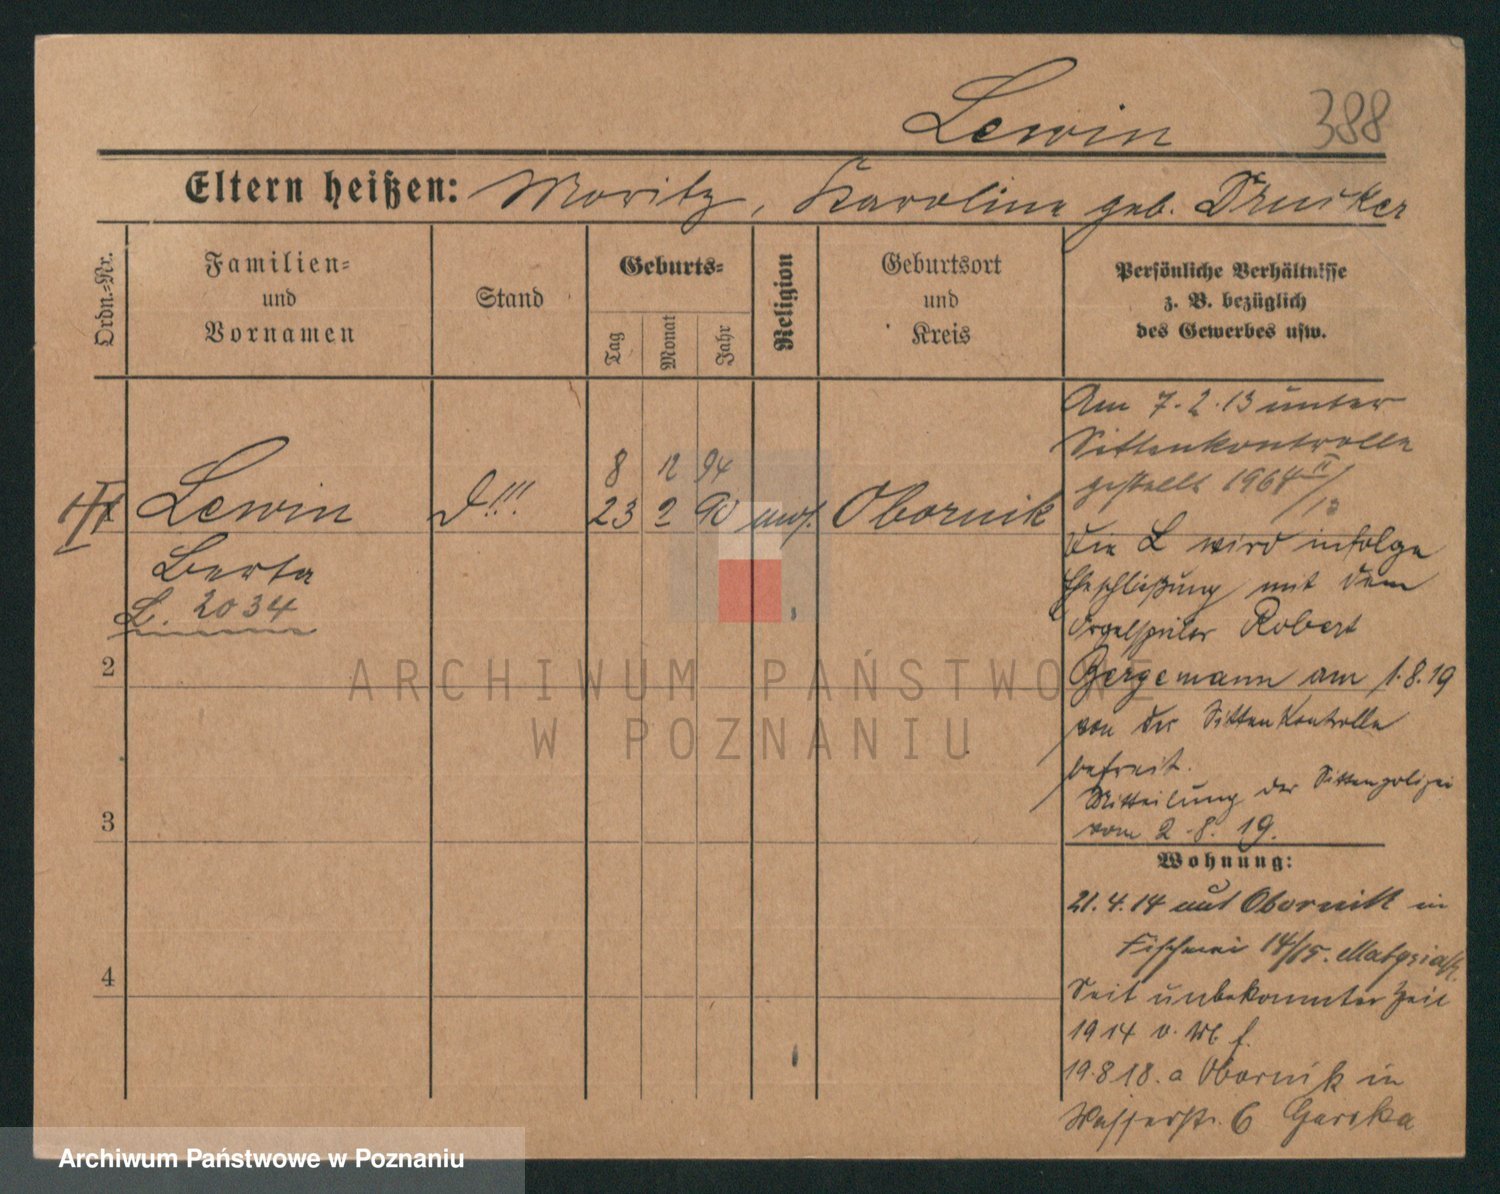 Lewin
388
Eltern heißen: Moritz, Karoline geb. Drucker
Ordn.-Nr.
Familien-
und
Vornamen
Stand
Geburts-
Tag
Monat
Jahr
Religion
Geburtsort
und
Kreis
Persönliche Verhältnisse
z. B. bezüglich
des Gewerbes usw.
8 12 94
Lewin
23 2 90 mos. Obornik
Berta
L. 2034
2
3
4
Am 7.2.13 unter
Sittenkontrolle
gestellt 1964 II/13
Die L wird infolge
Eheschließung mit dem
Orgelspieler Robert
Bergemann am 1.8.19
von der Sittenkontrolle
befreit.
Mitteilung der Sittenpolizei
vom 2.8.19.
Wohnung:
21.4.14 aus Obornik in
Fischerei 14/15. Matysiak.
Seit unbekannter Zeit
1914 v.
19.8.18. a Obornik in
Wasserstr. 6 Garska
ARCHIWUM PAŃSTWOWE
W POZNANIU
Archiwum Państwowe w Poznaniu